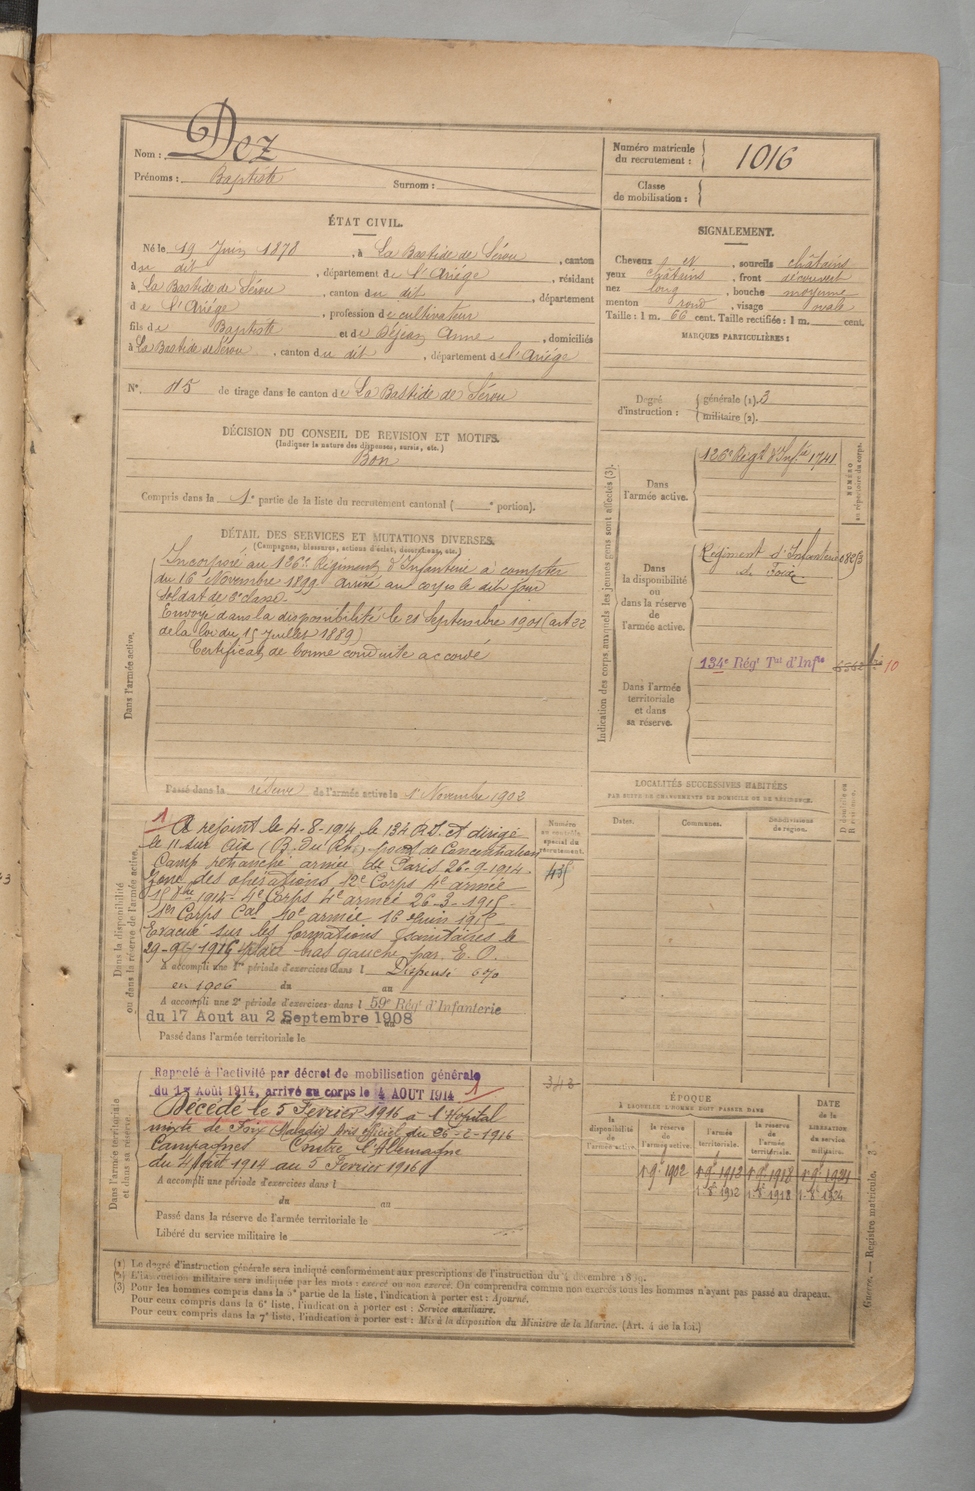 Nom : Dez
Prénoms : Baptiste Surnom :
Numéro matricule du recrutement : 1016
Classe de mobilisation :
ÉTAT CIVIL.
Né le 19 Juin 1878, à La Bastide de Sérou, canton
du dit, département de l'Ariège, résidant
à La Bastide de Sérou, canton du dit, département
de l'Ariège, profession de cultivateur
fils de Baptiste et de Déjean Anne, domiciliés
à La Bastide de Sérou, canton du dit, département de l'Ariège
N° 115 de tirage dans le canton de La Bastide de Sérou
DÉCISION DU CONSEIL DE REVISION ET MOTIFS.
(Indiquer la nature des dispenses, sursis, etc.)
Bon
Compris dans la 1e partie de la liste du recrutement cantonal ( e portion).
SIGNALEMENT.
Cheveux et, sourcils châtains
yeux châtains, front découvert
nez long, bouche moyenne
menton rond, visage ovale
Taille : 1 m. 66 cent. Taille rectifiée : 1 m. cent.
MARQUES PARTICULIÈRES :
Degré d'instruction : générale (1). 3
militaire (2).
DÉTAIL DES SERVICES ET MUTATIONS DIVERSES.
(Campagnes, blessures, actions d'éclat, décorations, etc.)
Dans l'armée active.
Incorporé au 126e Régiment d'Infanterie à compter
du 16 Novembre 1899. Arrivé au corps le dit jour
Soldat de 2e classe.
Envoyé dans la disponibilité le 21 Septembre 1901 (art 22
de la loi du 15 Juillet 1889)
Certificat de bonne conduite accordé
Passé dans la réserve de l'armée active le 1er Novembre 1902
Indication des corps auxquels les jeunes gens sont affectés (3).
NUMÉRO au répertoire du corps.
Dans l'armée active.
126e Régt d'Infie 1741
Dans la disponibilité ou dans la réserve de l'armée active.
Régiment d'Infanterie
de Foix
Dans l'armée territoriale et dans sa réserve.
134e Régt Tal d'Infie 10
LOCALITÉS SUCCESSIVES HABITÉES
PAR SUITE DE CHANGEMENTS DE DOMICILE OU DE RÉSIDENCE.
Dates. Communes. Subdivisions de région. D. domicile ou R. résidence.
Dans la disponibilité ou dans la réserve de l'armée active.
Numéro au contrôle spécial du recrutement.
1 A rejoint le 4-8-1914 le 134 R.I.T dirigé
le 11 sur Aix (B. du Rh.) point de Concentration
Camp retranché armée de Paris 26-9-1914
Zone des opérations 12e Corps 4e armée
1914 - 4e Corps 4e armée 26-3-1915
Corps Cal 10e armée 16 Juin 1915
Evacué sur les formations sanitaires le
bras gauche par E. O.
A accompli une 1re période d'exercices dans l Dispensé
en 1906 du au
A accompli une 2e période d'exercices dans l 59e Rég d'Infanterie
du 17 Aout au 2 Septembre 1908
Passé dans l'armée territoriale le
Dans l'armée territoriale et dans sa réserve.
Rappelé à l'activité par décret de mobilisation générale
du 1er Août 1914, arrivé au corps le 4 AOUT 1914 1
Décédé le 5 Février 1916 à l'Hôpital
mixte de Foix (Maladie) Avis officiel du 25-2-1916
Campagnes Contre l'Allemagne
du 4 Août 1914 au 5 Février 1916
A accompli une période d'exercices dans l
du au
Passé dans la réserve de l'armée territoriale le
Libéré du service militaire le
ÉPOQUE
À LAQUELLE L'HOMME DOIT PASSER DANS
DATE de la LIBÉRATION du service militaire.
la disponibilité de l'armée active. la réserve de l'armée active. l'armée territoriale. la réserve de l'armée territoriale.
1 9e 1902 1 9e 1912 1 9e 1918 1 9e 1924
1 8e 1912 1 8e 1918 1 8e 1924
(1) Le degré d'instruction générale sera indiqué conformément aux prescriptions de l'instruction du 4 décembre 1889.
(2) L'instruction militaire sera indiquée par les mots : exercé ou non exercé. On comprendra comme non exercés tous les hommes n'ayant pas passé au drapeau.
(3) Pour les hommes compris dans la 5e partie de la liste, l'indication à porter est : Ajourné.
Pour ceux compris dans la 6e liste, l'indication à porter est : Service auxiliaire.
Pour ceux compris dans la 7e liste, l'indication à porter est : Mis à la disposition du Ministre de la Marine. (Art. 4 de la loi.)
Guerre. — Registre matricule. 3